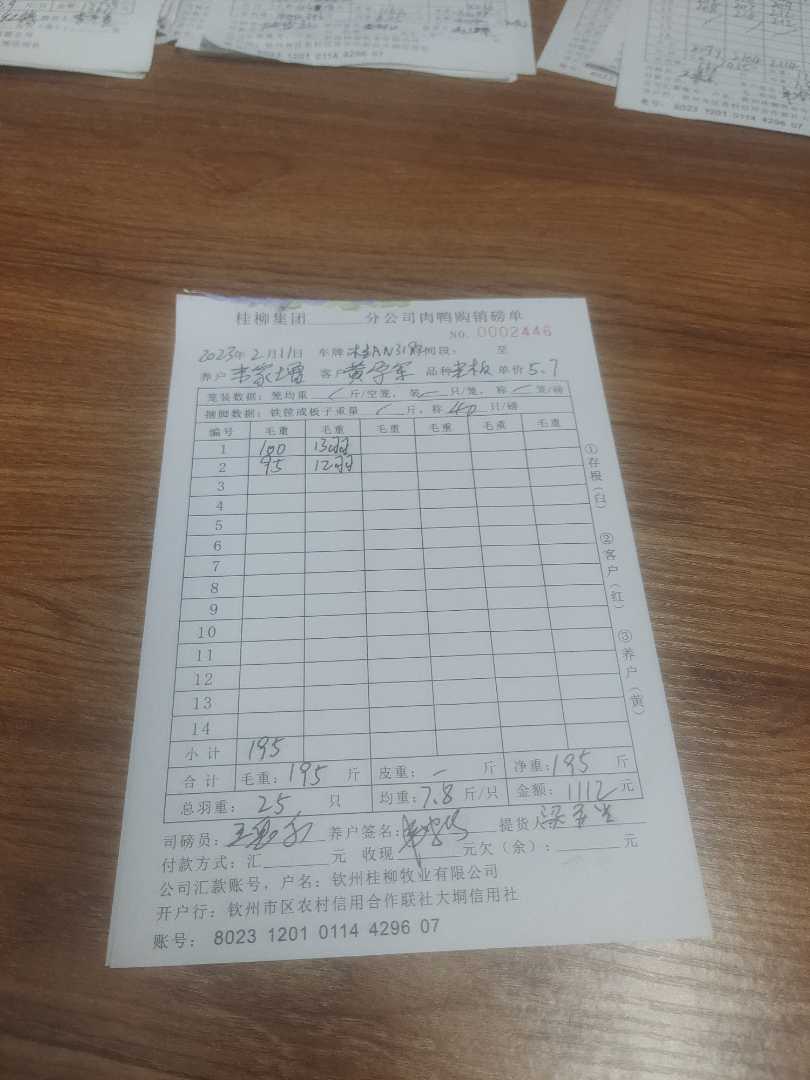 桂柳集团______分公司肉鸭购销磅单
NO. 0002446
2023年2月11日 车牌 时间段: 至
养户 韦家增 客户 黄学军 品种 半板 单价 5.7
笼装数据: 笼均重 / 斤/空笼, 装 / 只/笼, 称 / 笼/磅
捆脚数据: 铁筐或板子重量 / 斤, 称 40 只/磅
编号 毛重 毛重 毛重 毛重 毛重 毛重
1 100 13羽
2 95 12羽
3
4
5
6
7
8
9
10
11
12
13
14
小计 195
合计 毛重: 195 斤 皮重: - 斤 净重: 195 斤
总羽重: 25 只 均重: 7.8 斤/只 金额: 1112 元
司磅员: 养户签名: 提货人
付款方式: 汇______元 收现______元欠(余): ______元
公司汇款账号, 户名: 钦州桂柳牧业有限公司
开户行: 钦州市区农村信用合作联社大垌信用社
账号: 8023 1201 0114 4296 07
①存根(白) ②客户(红) ③养户(黄)
1201 0114 4296 07
账号: 8023 1201 0114 4296 07